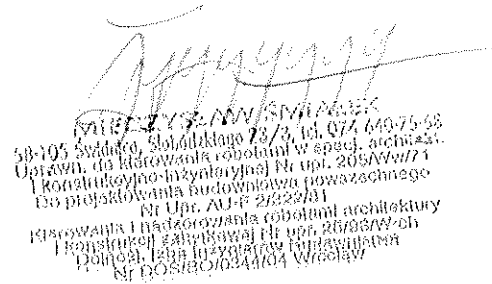 MIECZYSŁAW SMIAŁEK
58-105 Świdnica, 78/3, tel. 074 640-75-58
Uprawn. do kierowania robotami w specj. architekt.
i konstrukcyjno-inżynieryjnej Nr upr. 209/Ww/71
Do projektowania budownictwa powszechnego
Nr Upr. AU-F 2/222/81
Kierowania i nadzorowania robotami architektury
i konstrukcji zabytkowej Nr upr. 26/93/W-ch
Dolnośl. Izba Inżynierów Budownictwa
Nr DOŚ/BO/0344/04 Wrocław